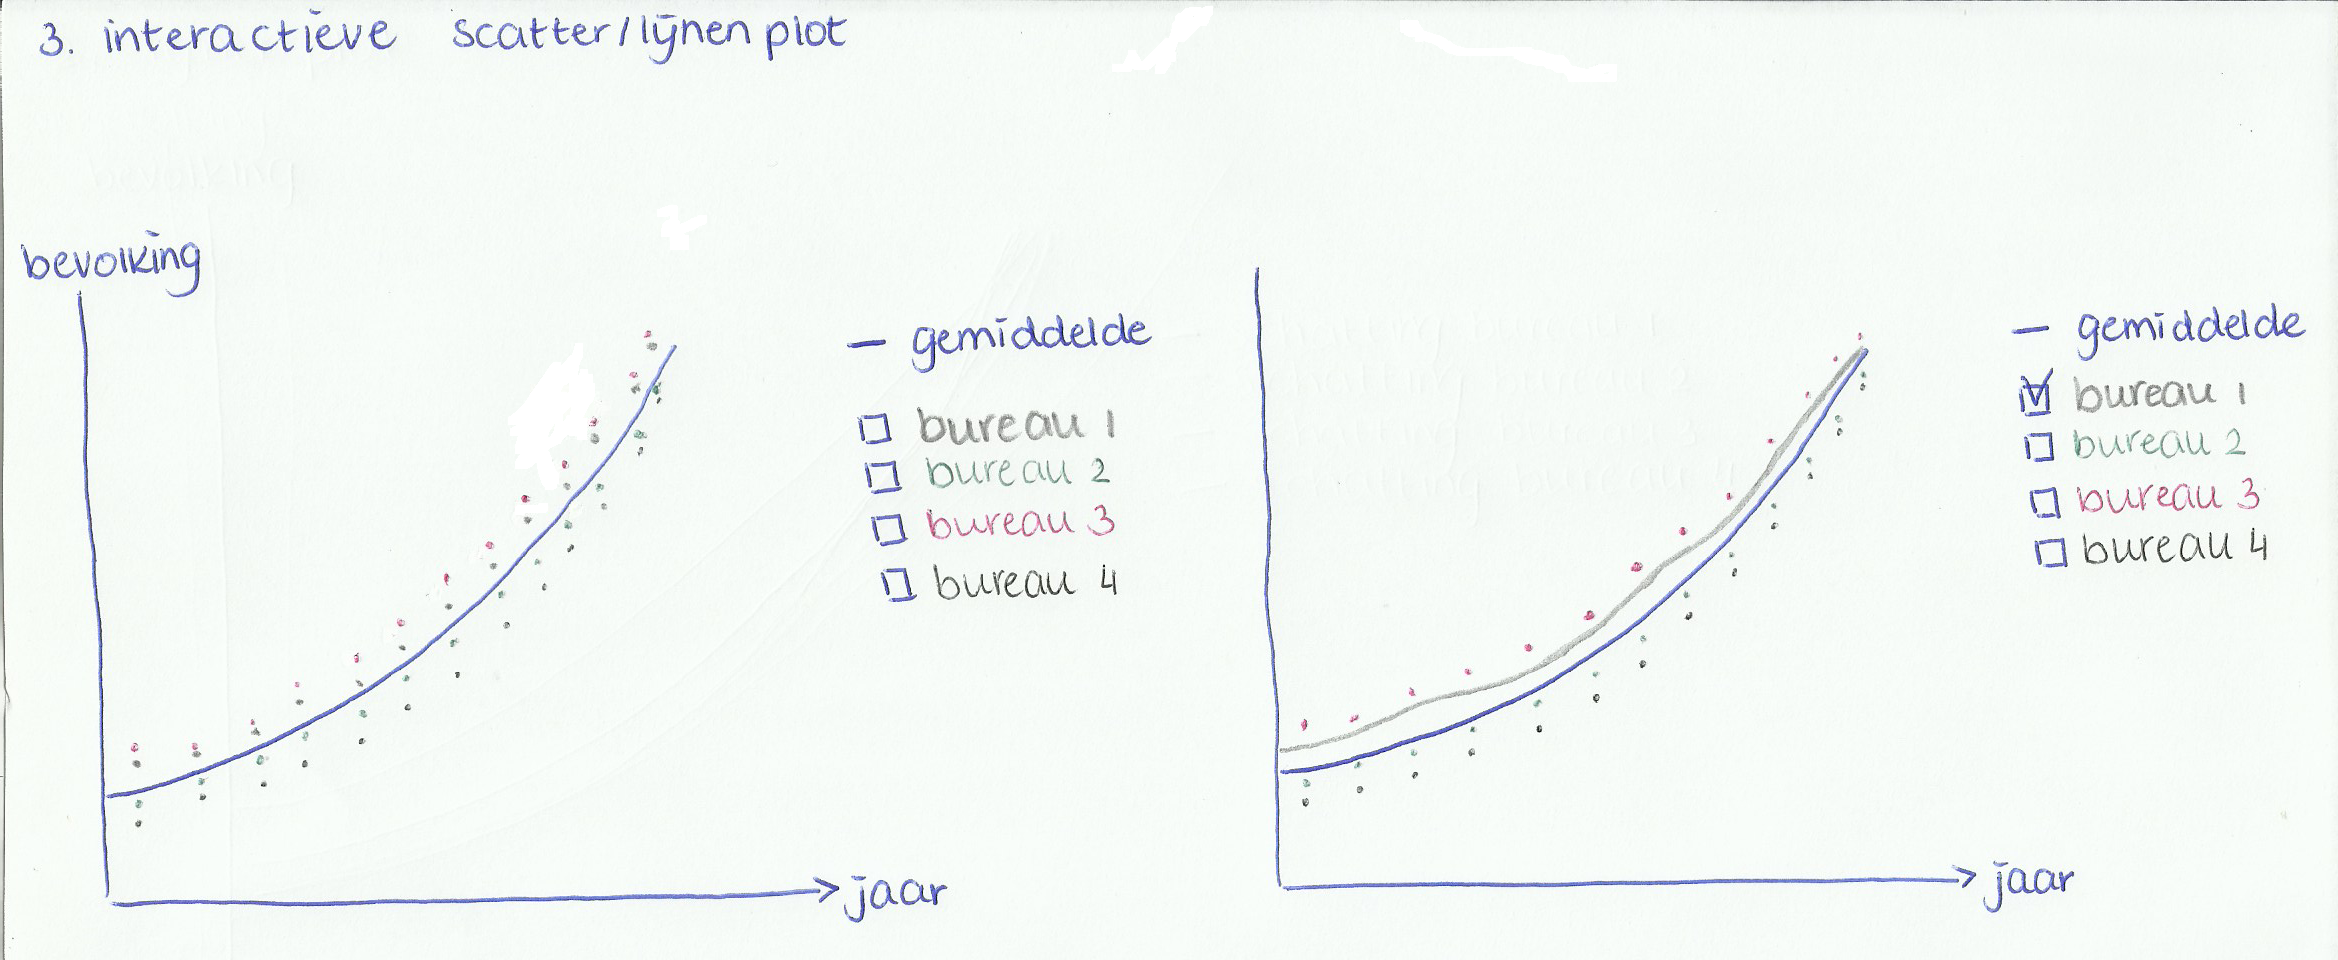 3. interactieve scatter/lijnen plot
bevolking
— gemiddelde
bureau 1
bureau 2
bureau 3
bureau 4
jaar
— gemiddelde
bureau 1
bureau 2
bureau 3
bureau 4
jaar